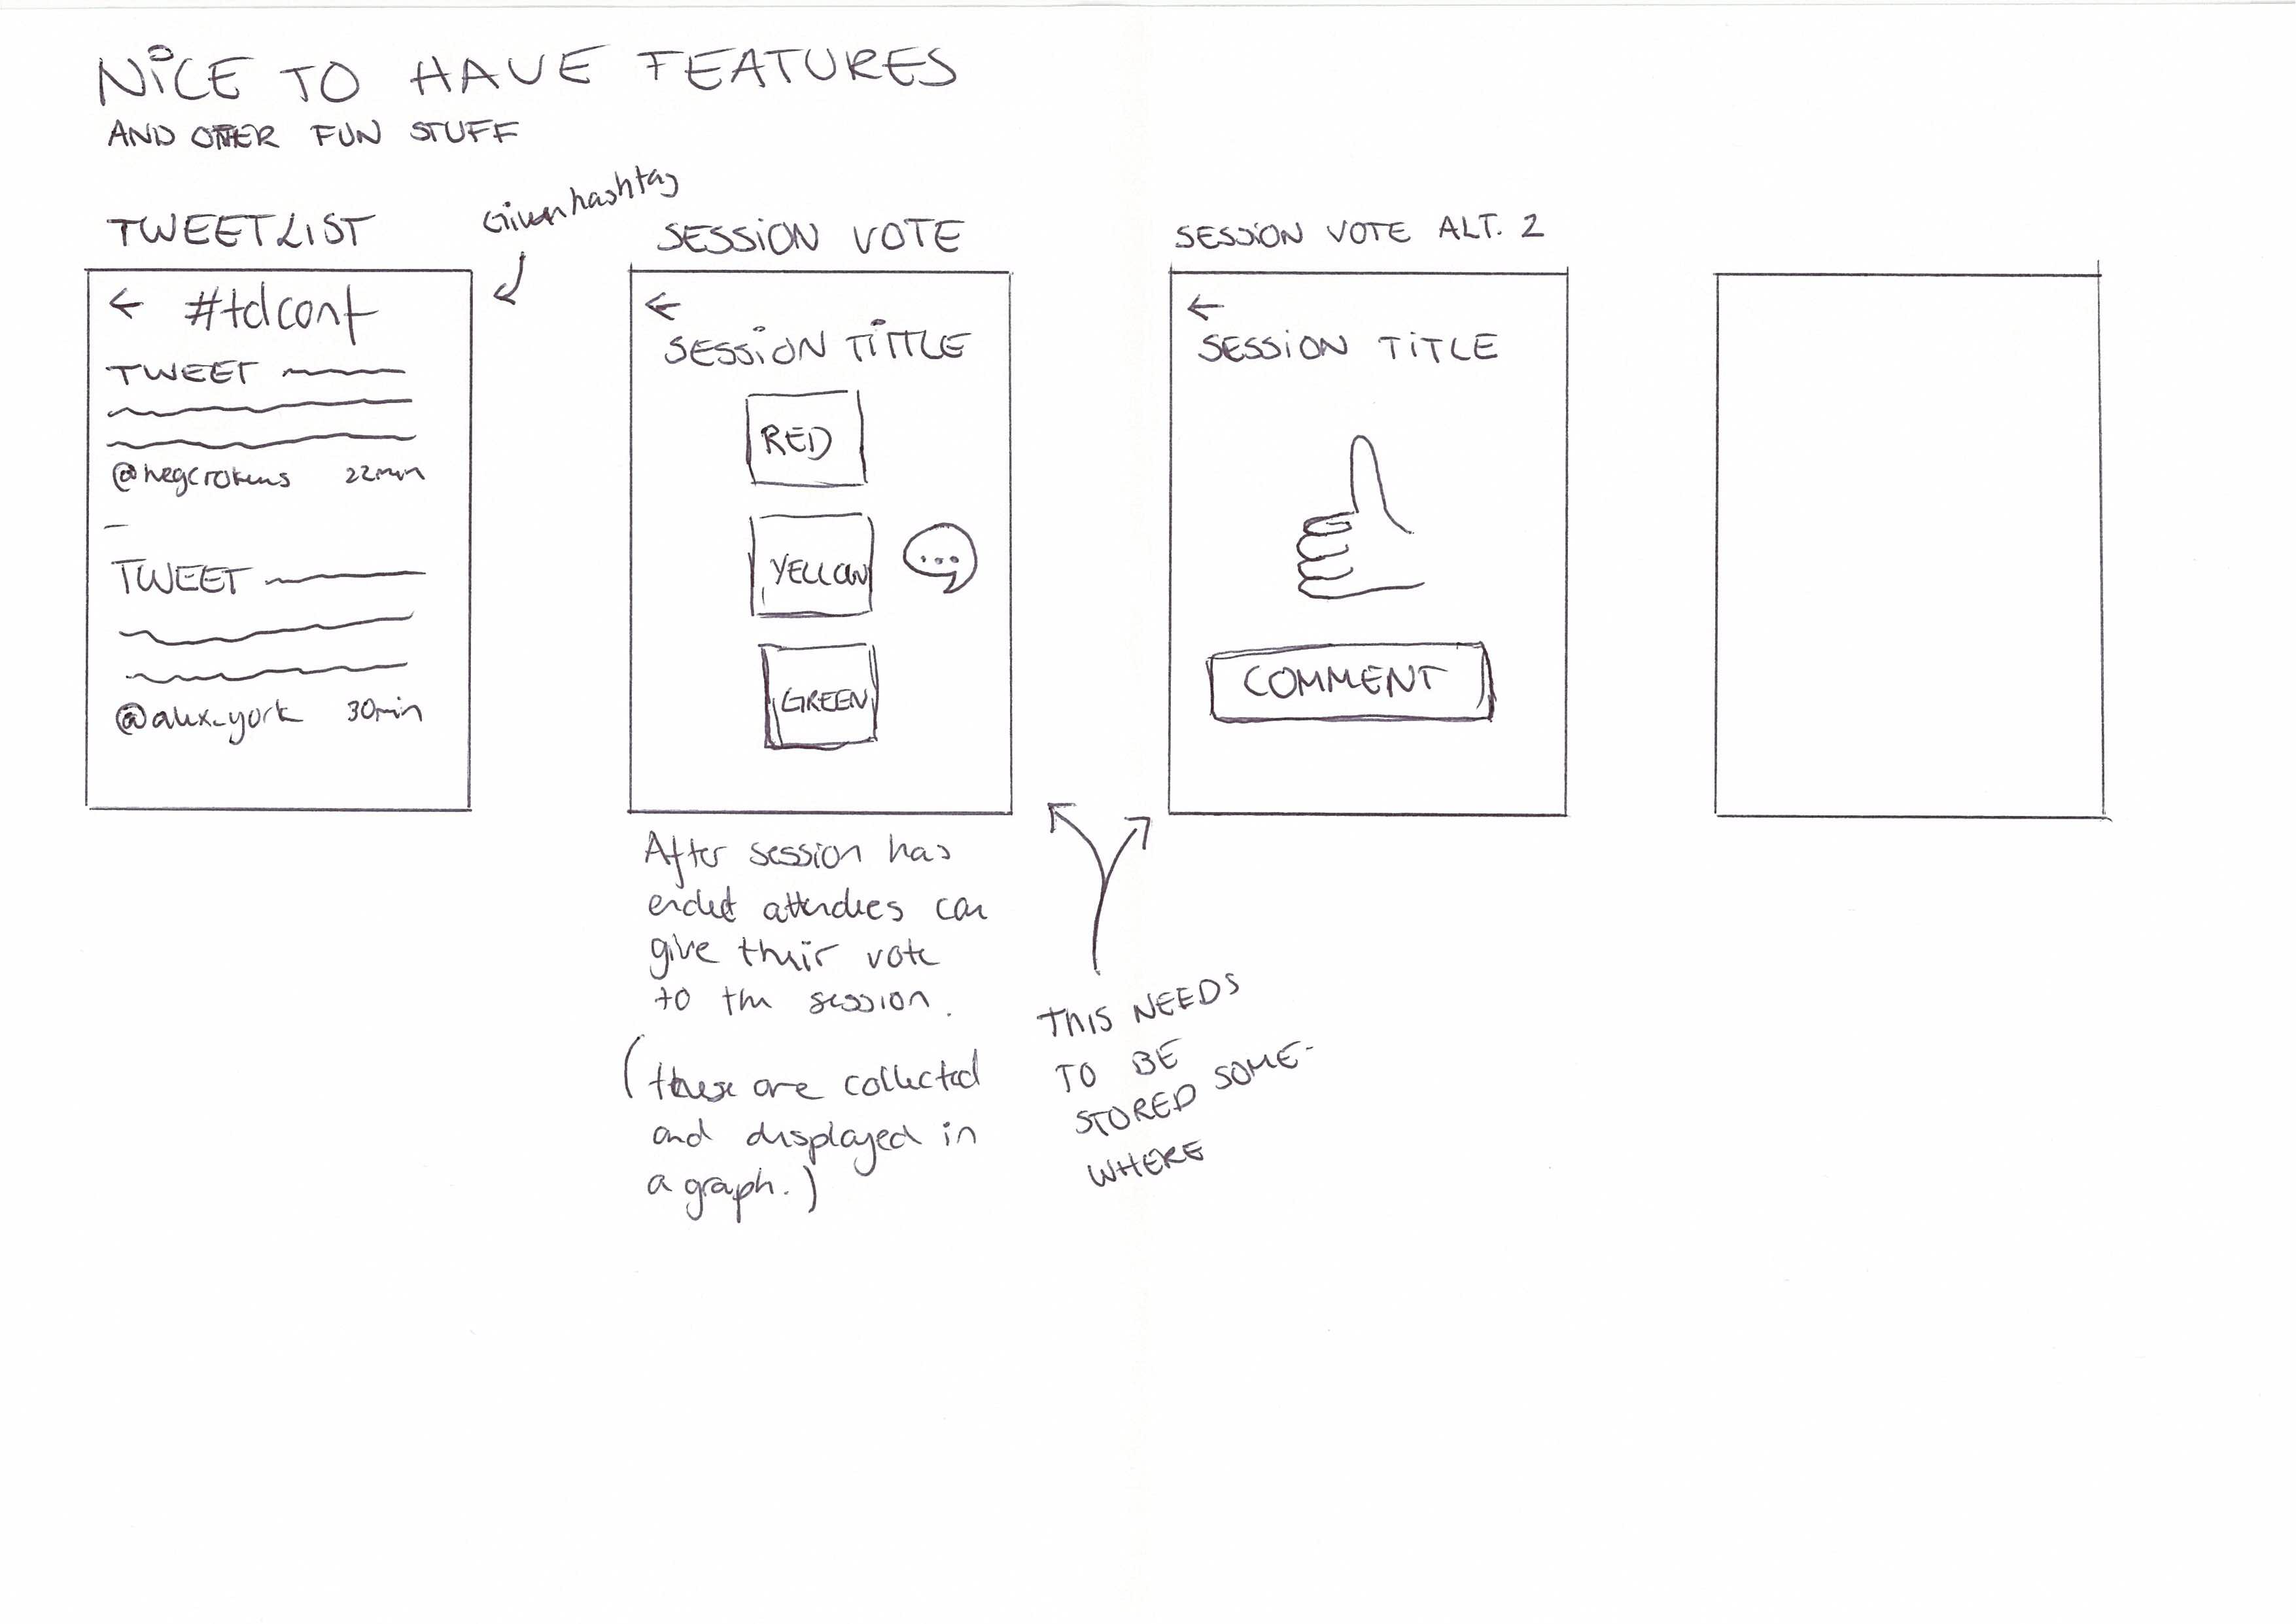 NiCE TO HAVE FEATURES
AND OTHER FUN STUFF
Given hashtag
TWEETLIST
← #tdconf
TWEET
22min
TWEET
@alex_york 30min
SESSiON VOTE
←
SESSiON TiTTLE
RED
YELLOW
...
GREEN
After session has
ended attendees can
give their vote
to the session.
(these are collected
and displayed in
a graph.)
SESSiON VOTE ALT. 2
←
SESSiON TiTLE
COMMENT
THIS NEEDS
TO BE
STORED SOME-
WHERE